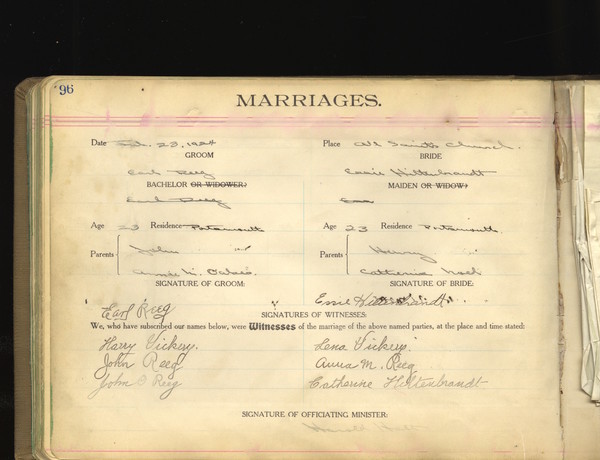 96
MARRIAGES.
Date Feb. 23, 1924 Place All Saints Church.
GROOM BRIDE
Earl Reeg Essie Hiltenbrandt
BACHELOR OR WIDOWER: MAIDEN OR WIDOW:
Earl Reeg
Age 23 Residence Portsmouth Age 23 Residence Portsmouth
Parents John Parents Henry
Anna M. Catherine
SIGNATURE OF GROOM: SIGNATURE OF BRIDE:
Earl Reeg Essie Hiltenbrandt
SIGNATURES OF WITNESSES:
We, who have subscribed our names below, were Witnesses of the marriage of the above named parties, at the place and time stated:
Harry Vickery. Lena Vickery
John Reeg Anna M. Reeg
John Reeg Catherine Hiltenbrandt
SIGNATURE OF OFFICIATING MINISTER: